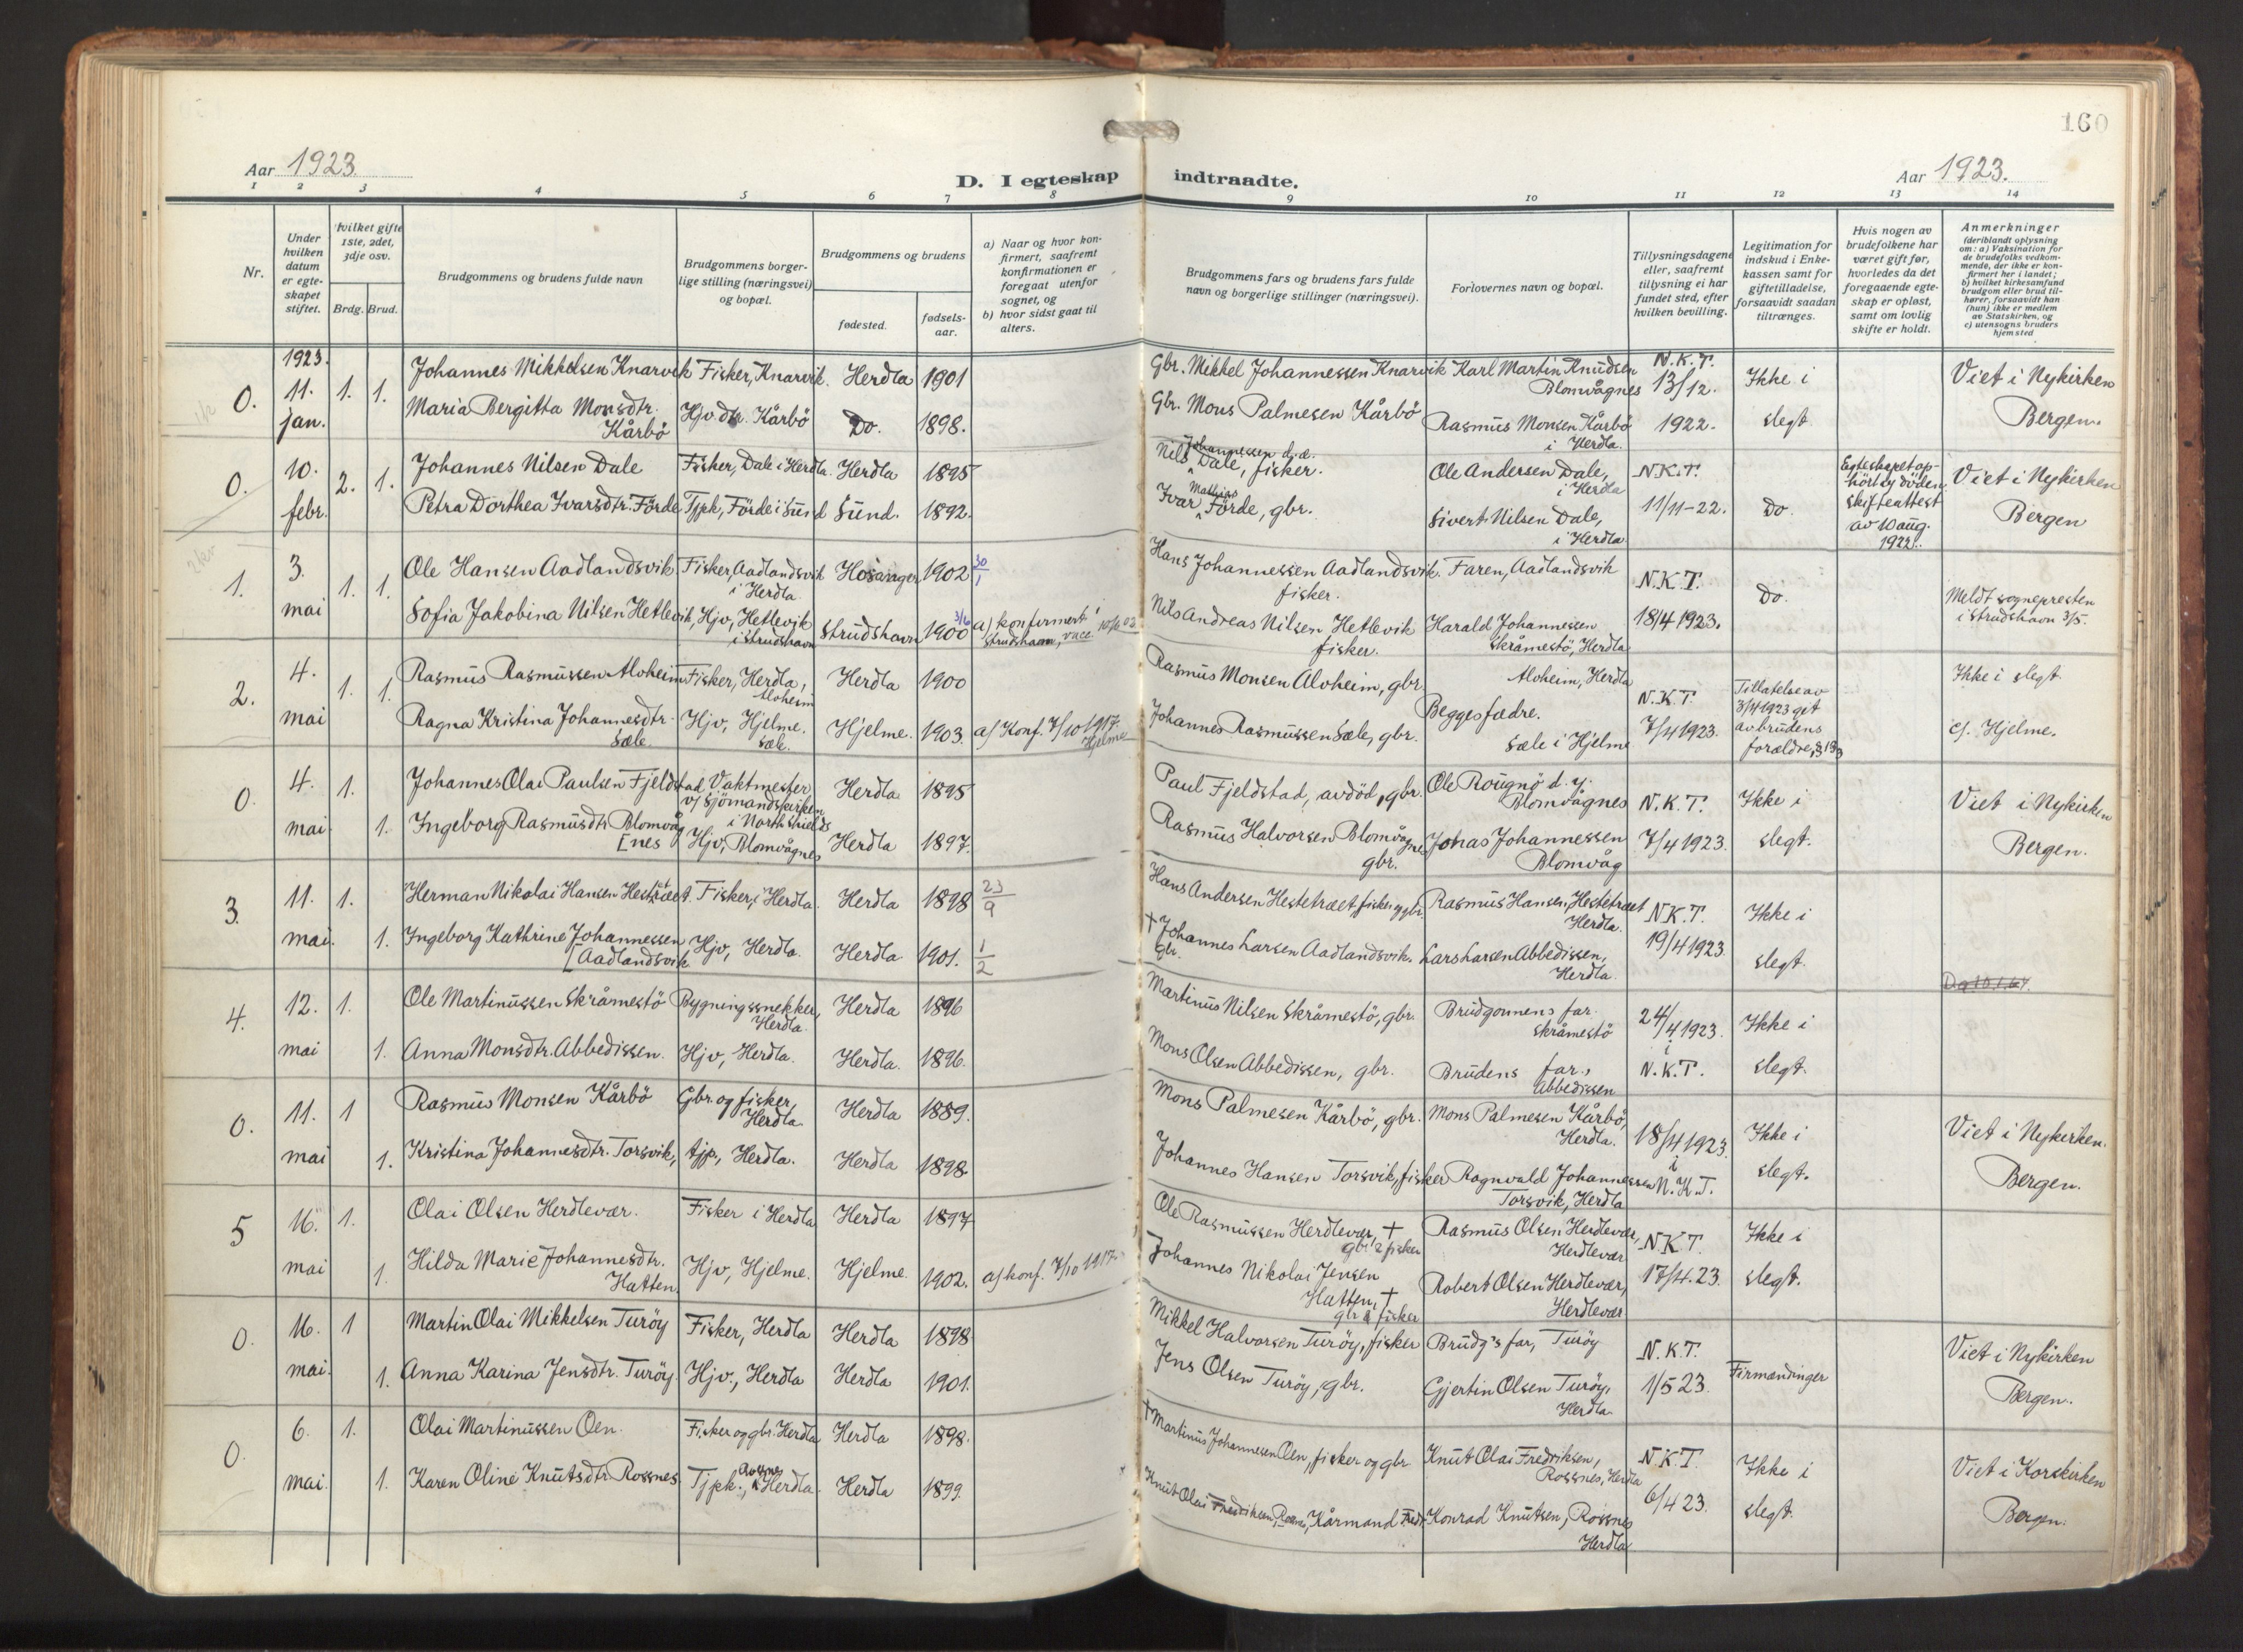 160
Aar 1923.
D. I egteskap indtraadte.
Aar 1923.
1 2 3 4 5 6 7 8 9 10 11 12 13 14
Nr.
Under hvilken datum er egteskapet stiftet.
Hvilket gifte 1ste, 2det, 3dje osv.
Brdg. Brud.
Brudgommens og brudens fulde navn
Brudgommens borgerlige stilling (næringsvei) og bopæl.
Brudgommens og brudens
fødested.
fødselsaar.
a) Naar og hvor konfirmert, saafremt konfirmationen er foregaat utenfor sognet, og
b) hvor sidst gaat til alters.
Brudgommens fars og brudens fars fulde navn og borgerlige stillinger (næringsvei).
Forlovernes navn og bopæl.
Tillysningsdagene eller, saafremt tillysning ei har fundet sted, efter hvilken bevilling.
Legitimation for indskud i Enkekassen samt for giftetilladelse, forsaavidt saadan tiltrænges.
Hvis nogen av brudefolkene har været gift før, hvorledes da det foregaaende egteskap er opløst, samt om lovlig skifte er holdt.
Anmerkninger (deriblandt oplysning om: a) Vaksination for de brudefolks vedkommende, der ikke er konfirmert her i landet; b) hvilket kirkesamfund brudgom eller brud tilhører, forsaavidt han (hun) ikke er medlem av Statskirken, og c) utensogns bruders hjemsted
0. 1923. 11. jan. 1. 1.
Johannes Mikkelsen Knarvik Fisker, Knarvik. Herdla 1901
Maria Bergitta Monsdtr. Kårbö Hjv dtr. Kårbö Do. 1898.
Gbr. Mikkel Johannessen Knarvik Karl Martin Knudsen Blomvågnes
Gbr. Mons Palmesen Kårbö Rasmus Monsen Kårbö i Herdla.
N.K.T. 13/12. 1922. Ikke i slegt Viet i Nykirken Bergen.
0. 10. febr. 2. 1.
Johannes Nilsen Dale Fisker, Dale i Herdla. Herdla 1895
Petra Dorthea Ivarsdtr. Förde Tjpk, Förde i Sund Sund. 1892.
Nils Johannessen d.æ. Dale, fisker. Ole Andersen Dale, i Herdla
Ivar Mathias Förde, gbr. Sivert Nilsen Dale, i Herdla
N.K.T. 11/11-22. Do. Egteskapet ophört ey döden, skifteattest av 10 aug. 1922. Viet i Nykirken Bergen
1. 3. mai 1. 1.
Ole Hansen Aadlandsvik Fisker, Aadlandsvik i Herdla. Hosanger 1902 30/1
Sofia Jakobina Nilsen Hetlevik, Hjv, Hetlevik i Strudshavn Strudshavn 1900 3/6 a) konfirmert Strudshavn, vacc.
Hans Johannessen Aadlandsvik. fisker. Faren, Aadlandsvik
Nils Andreas Nilsen Hetlevik fisker. Harald Johannessen Skråmestö, Herdla
N.K.T. 18/4 1923. Do. Meldt sognepresten i Strudshavn 3/5.
2. 4. mai 1. 1.
Rasmus Rasmussen Alvheim Fisker, Herdla, Alvheim Herdla 1900
Ragna Kristina Johannesdtr. Sæle. Hjv, Hjelme. Sæle. Hjelme. 1903. a) Konf. 7/10 1917. Hjelme
Rasmus Monsen Alvheim, gbr. Alvheim, Herdla
Begges fædre.
Johannes Rasmussen Sæle, gbr. Sæle i Hjelme
N.K.T. 7/4 1923. Tillatelse av 3/4 1923 git av brudens forældre Ikke i slegt. c). Hjelme.
0. 4. mai 1. 1.
Johannes Olai Paulsen Fjeldstad Vaktmester v/ Sjömandskirken i North Shields Herdla 1895
Ingeborg Rasmusdtr Blomvåg [nes Hjv, Blomvågnes Herdla 1897.
Paul Fjeldstad, avdöd, gbr. Ole Rougnö d. y. Blomvågnes
Rasmus Halvorsen Blomvågnes gbr. Johas Johannessen Blomvåg
N.K.T. 7/4 1923. Ikke i slegt. Viet i Nykirken Bergen.
3. 11. mai. 1. 1.
Herman Nikolai Hansen Hestetræet. Fisker, i Herdla. Herdla 1898 23/9
Ingeborg Kathrine Johannessen [Aadlandsvik Hjv, Herdla. Herdla 1901. 1/2
Hans Andersen Hestetræet, fisker og gbr. Rasmus Hansen, Hestetræet Herdla.
† Johannes Larsen Aadlandsvik. gbr. Lars Larsen Abbedissen, Herdla.
N.K.T. 19/4 1923. Ikke i slegt.
4. 12. mai 1. 1.
Ole Martinussen Skråmestö Bygningssnekker, Herdla. Herdla 1896
Anna Monsdtr. Abbedissen. Hjv, Herdla. Herdla. 1896.
Martinus Nilsen Skråmestö, gbr. Brudgommens far. Skråmestö
Mons Olsen Abbedissen, gbr. Brudens far, Abbedissen
24/4 1923. i N.K.T. Ikke i slegt.
0. 11. mai 1 1.
Rasmus Monsen Kårbö Gbr. og fisker, Herdla. Herdla 1889.
Kristina Johannesdtr. Torsvik, tjp., Herdla. Herdla 1898.
Mons Palmesen Kårbö, gbr. Mons Palmesen Kårbö, Herdla.
Johannes Hansen Torsvik, fisker Ragnvald Johannessen Torsvik, Herdla
18/4 1923. i N.K.T. Ikke i slegt. Viet i Nykirken. Bergen.
5 16. mai 1. 1.
Olai Olsen Herdlevær. Fisker i Herdla Herdla 1897
Hilda Marie Johannesdtr. Hatten Hjv, Hjelme. Hjelme. 1902. a) konf. 7/10 1917.
Ole Rasmussen Herdlevær, † gbr & fisker Rasmus Olsen Herdlevær, Herdlevær
Johannes Nikolai Jensen Hatten, † gbr & fisker Robert Olsen Herdlevær, Herdlevær
N.K.T. 17/4.23. Ikke i slegt.
0. 16. mai. 1 1.
Martin Olai Mikkelsen Turöy Fisker, Herdla Herdla 1898
Anna Karina Jensdtr. Turöy Hjv., Herdla Herdla 1901.
Mikkel Halvorsen Turöy, fisker Brudg's far, Turöy
Jens Olsen Turöy, gbr. Gjertin Olsen Turöy, Herdla.
N.K.T. 1/5 23. Firmændinger Viet i Nykirken Bergen.
0. 6. mai. 1. 1.
Olai Martinussen Oen. Fisker og gbr. Herdla Herdla 1898.
Karen Oline Knutsdtr Rossnes. Tjpk., Rossnes Herdla. Herdla 1899.
† Martinus Johannesen Oen, fisker og gbr Knut Olai Fredriksen, Rossnes, Herdla
Knut Olai Fredriksen, Rossnes, Kårmand Konrad Knutsen, Rossnes Herdla
N.K.T. 6/4 23. Ikke i slegt. Viet i Korskirken Bergen.